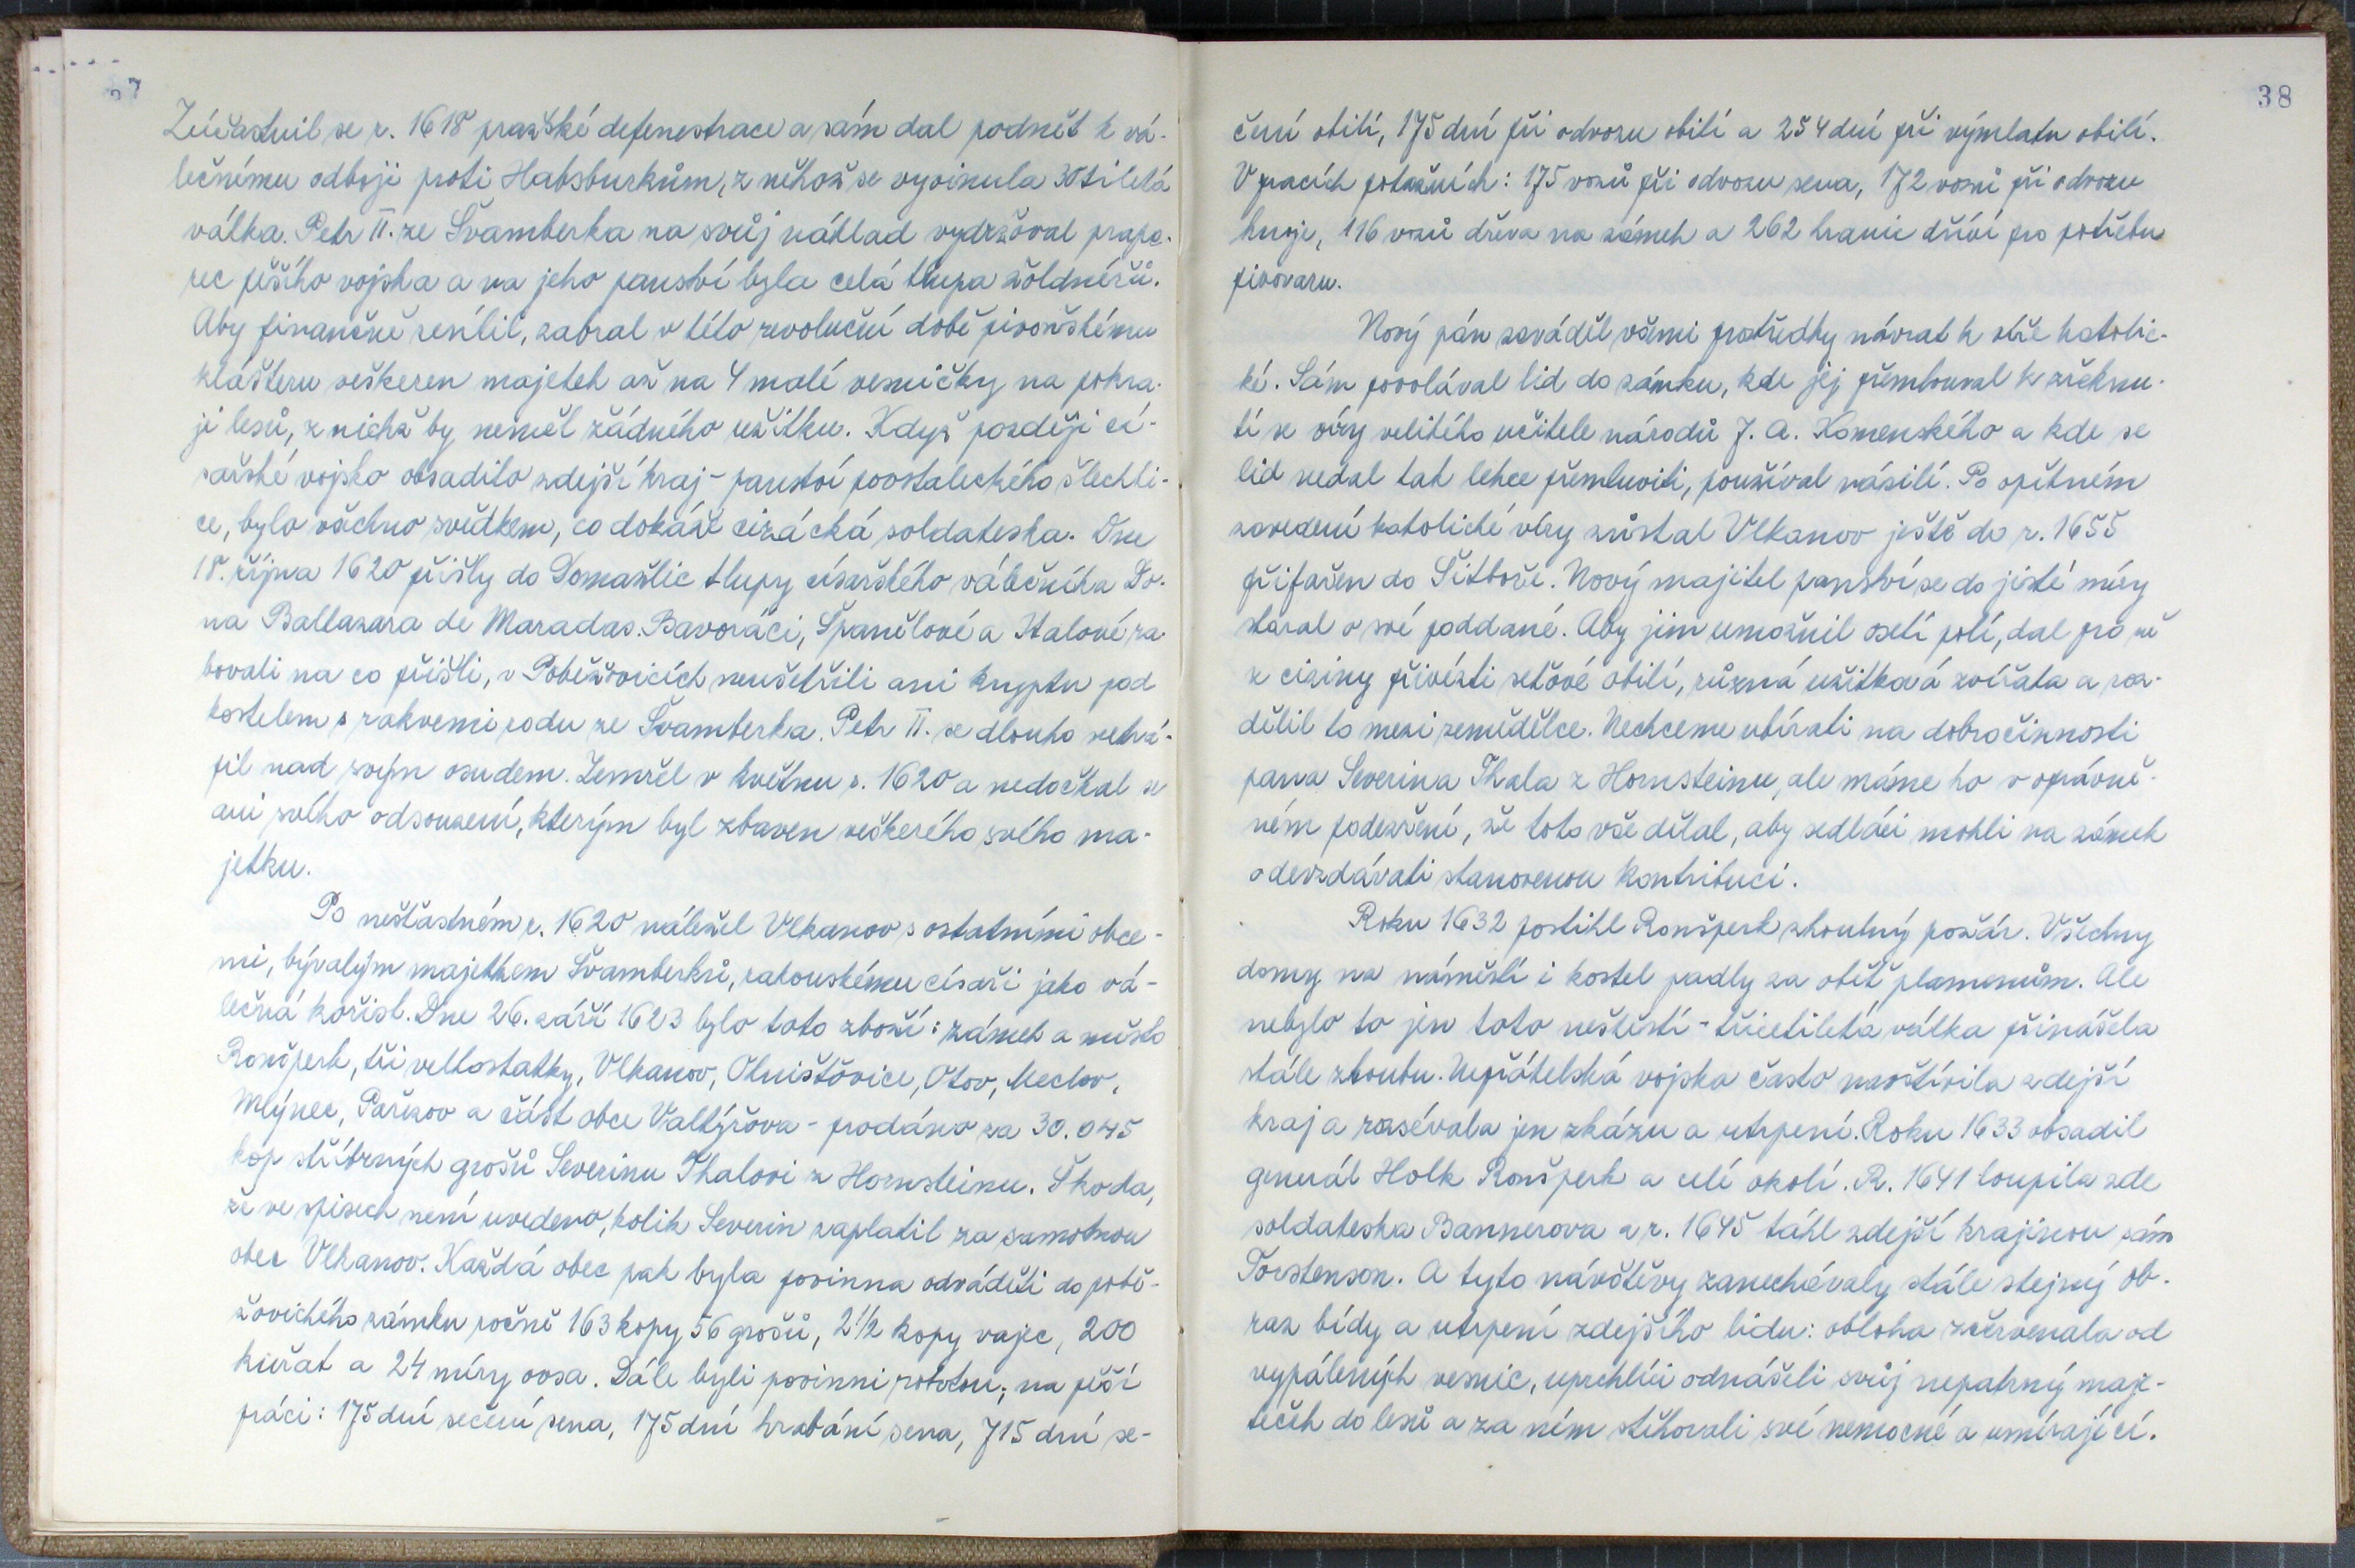 37
Zúčastnil se r. 1618 pražské defenestrace a sám dal podnět k vá-
lečnému odboji proti Habsburkům, z něhož se vyvinula 30tiletá
válka. Petr II. ze Švamberka na svůj náklad vydržoval prapo-
rec pěšího vojska a na jeho panství byla celá tlupa žoldnéřů.
Aby finančně zesílil, zabral v této revoluční době pivoňskému
klášteru veškeren majetek až na 4 malé vesničky na pokra-
ji lesů, z nichž by neměl žádného užitku. Když později cí-
sařské vojsko obsadilo zdejší kraj - panství povstaleckého šlechti-
ce, bylo všechno svědkem, co dokáže cizácká soldateska. Dne
18. října 1620 přišly do Domažlic tlupy císařského válečníka Do-
na Baltazara de Maradas. Bavoráci, Španělové a Italové ra-
bovali na co přišli, v Poběžovicích neušetřili ani kryptu pod
kostelem s rakvemi rodu ze Švamberka. Petr II. se dlouho netrá-
pil nad svým osudem. Zemřel v květnu r. 1620 a nedočkal se
ani svého odsouzení, kterým byl zbaven veškerého svého ma-
jetku.
Po nešťastném r. 1620 náležel Vlkanov s ostatními obce-
mi, bývalým majetkem Švamberků, rakouskému císaři jako vá-
lečná kořist. Dne 26. září 1623 bylo toto zboží: zámek a město
Ronšperk, tři velkostatky, Vlkanov, Ohništovice, Otov, Meclov,
Mlýnec, Pařezov a část obce Valtýřova - prodáno za 30.045
kop stříbrných grošů Severinu Thalovi z Hornsteinu. Škoda,
že ve spisech není uvedeno, kolik Severin zaplatil za samotnou
obec Vlkanov. Každá obec pak byla povinna odváděti do pobě-
žovického zámku ročně 163 kopy 56 grošů, 2 1/2 kopy vajec, 200
kuřat a 24 míry ovsa. Dále byli povinni robotou; na pěší
práci: 175 dní sečení sena, 175 dní hrabání sena, 715 dní se-
38
čení obilí, 175 dní při odvozu obilí a 254 dní při výmlatu obilí.
V pracích potažních: 175 vozů při odvozu sena, 172 vozů při odvozu
hnoje, 116 vozů dřeva na zámek a 262 hranic dříví pro potřebu
pivovaru.
Nový pán zaváděl všemi prostředky návrat k víře katolic-
ké. Sám povolával lid do zámku, kde jej přemlouval k zřeknu-
tí se víry velikého učitele národů J. A. Komenského a kde se
lid nedal tak lehce přemluviti, používal násilí. Po opětném
zavedení katolické víry zůstal Vlkanov ještě do r. 1655
přifařen do Šitboře. Nový majitel panství se do jisté míry
staral o své poddané. Aby jim umožnil osetí polí, dal pro ně
z ciziny přivézti seťové obilí, různá užitková zvířata a roz-
dělil to mezi zemědělce. Nechceme ubírati na dobročinnosti
pana Severina Thala z Hornsteinu, ale máme ho v oprávně-
ném podezření, že toto vše dělal, aby sedláci mohli na zámek
odevzdávati stanovenou kontribuci.
Roku 1632 postihl Ronšperk zhoubný požár. Všechny
domy na náměstí i kostel padly za oběť plamenům. Ale
nebylo to jen toto neštěstí - třicetiletá válka přinášela
stále zhoubu. Nepřátelská vojska často navštívila zdejší
kraj a rozsévala jen zkázu a utrpení. Roku 1633 obsadil
generál Holk Ronšperk a celé okolí. R. 1641 loupila zde
soldateska Bannerova a r. 1645 táhl zdejší krajinou sám
Torstenson. A tyto návštěvy zanechávaly stále stejný ob-
raz bídy a utrpení zdejšího lidu: obloha zčervenala od
vypálených vesnic, uprchlíci odnášeli svůj nepatrný maje-
teček do lesů a za ním stěhovali své nemocné a umírající.